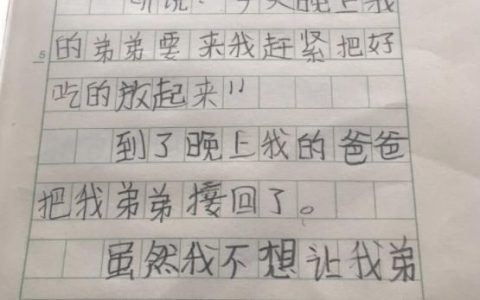 听说：今天晚上我
的弟弟要来我赶紧把好
吃的放起来！！
到了晚上我的爸爸
把我弟弟接回了。
虽然我不想让我弟